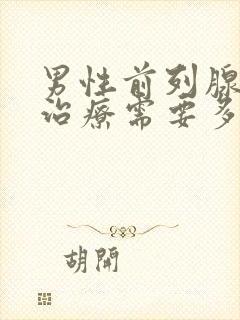 男性前列腺
治療需要多
胡開